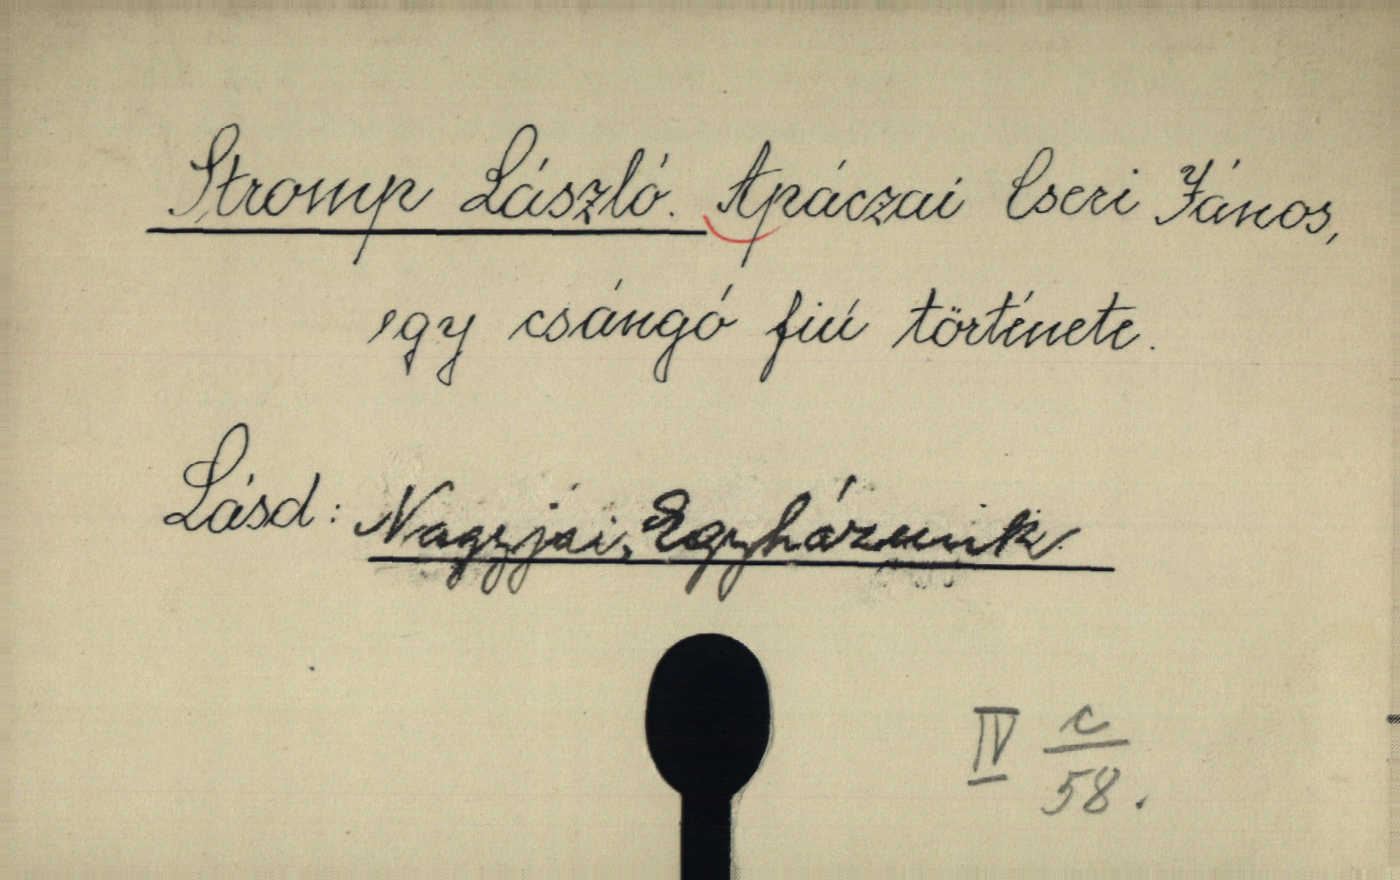 Stromp László. Apáczai Cseri János,
egy csángó fiú története.
Lásd: Nagyjai, Egyházunk.
IV c/58.